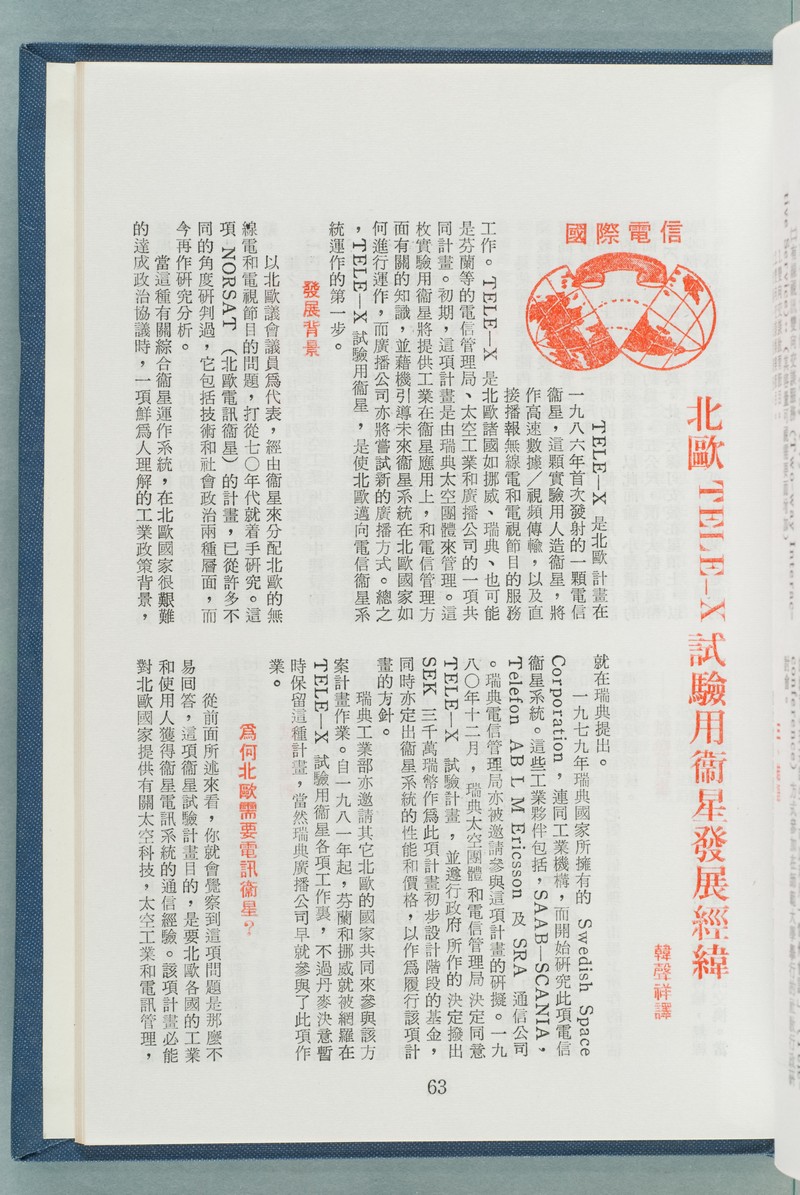 國際電信
北歐 TELE—X 試驗用衞星發展經緯
韓聲祥譯
TELE—X 是北歐計畫在
一九八六年首次發射的一顆電信
衞星，這顆實驗用人造衞星，將
作高速數據／視頻傳輸，以及直
接播報無線電和電視節目的服務
工作。TELE—X 是北歐諸國如挪威、瑞典、也可能
是芬蘭等的電信管理局、太空工業和廣播公司的一項共
同計畫。初期，這項計畫是由瑞典太空團體來管理。這
枚實驗用衞星將提供工業在衞星應用上，和電信管理方
面有關的知識，並藉機引導未來衞星系統在北歐國家如
何進行運作，而廣播公司亦將嘗試新的廣播方式。總之
，TELE—X 試驗用衞星，是使北歐邁向電信衞星系
統運作的第一步。
發展背景
以北歐議會議員爲代表，經由衞星來分配北歐的無
線電和電視節目的問題，打從七〇年代就着手研究。這
項 NORSAT （北歐電訊衞星）的計畫，已從許多不
同的角度研判過，它包括技術和社會政治兩種層面，而
今再作研究分析。
當這種有關綜合衞星運作系統，在北歐國家很艱難
的達成政治協議時，一項鮮爲人理解的工業政策背景，
就在瑞典提出。
一九七九年瑞典國家所擁有的 Swedish Space
Corporation ，連同工業機構，而開始研究此項電信
衞星系統。這些工業夥伴包括，SAAB—SCANIA，
Telefon AB L M Ericsson 及 SRA 通信公司
。瑞典電信管理局亦被邀請參與這項計畫的研擬。一九
八〇年十二月，瑞典太空團體和電信管理局決定同意
TELE—X 試驗計畫，並遵行政府所作的決定撥出
SEK 三千萬瑞幣作爲此項計畫初步設計階段的基金，
同時亦定出衞星系統的性能和價格，以作爲履行該項計
畫的方針。
瑞典工業部亦邀請其它北歐的國家共同來參與該方
案計畫作業。自一九八一年起，芬蘭和挪威就被網羅在
TELE—X 試驗用衞星各項工作裏，不過丹麥決意暫
時保留這種計畫，當然瑞典廣播公司早就參與了此項作
業。
爲何北歐需要電訊衞星？
從前面所述來看，你就會覺察到這項問題是那麼不
易回答，這項衞星試驗計畫目的，是要北歐各國的工業
和使用人獲得衞星電訊系統的通信經驗。該項計畫必能
對北歐國家提供有關太空科技，太空工業和電訊管理，
63